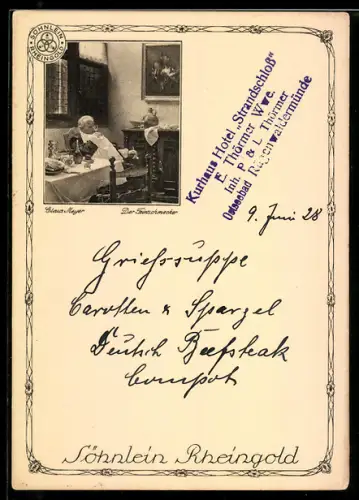 SÖHNLEIN RHEINGOLD
Claus Meyer Der Feinschmecker
Kurhaus Hotel „Strandschloß"
E. Thörmer Wwe.
Inh. P. & L. Thörmer
Ostseebad Rügenwaldermünde
9. Juni 28
Griessuppe
Carotten & Spargel
Deutsch Beefsteak
Compot
Söhnlein Rheingold